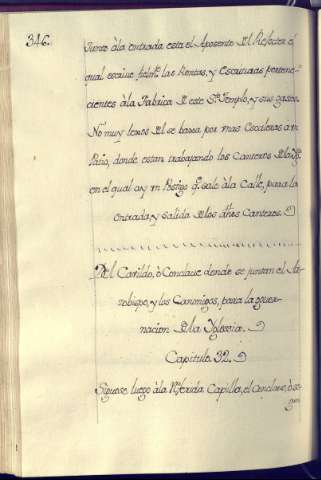 346.
Junto àla entrada esta el Aposento Del Refactor el
qual escrive, las Rentas, y Escrituras pertene-
cientes àla Fabrica D este Sto. Templo, y sus gastos.
No muy lexos Del se baxa por unas Escaleras a un
Patio, donde estan trabajando los Canteros
en el qual ay un Postigo q. sale àla Calle, para la
entrada, y salida Delos dhos. Canteros.
Del Cavildo, ò Conclave donde se juntan el Ar-
zobispo, y los Canonigos, para la gover-
nacion Dela Yglesia.
Capitulo. 32.
Siguese luego àla Referida Capilla, el Conclave, ò se-
gun